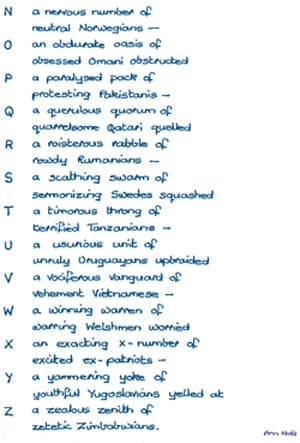 N a nervous number of
neutral Norwegians —
O an obdurate oasis of
obsessed Omani obstructed
P a paralysed pack of
protesting Pakistanis —
Q a querulous quorum of
quarrelsome Qatari quelled
R a roisterous rabble of
rowdy Rumanians —
S a scathing swarm of
sermonizing Swedes squashed
T a timorous throng of
terrified Tanzanians —
U a usurious unit of
unruly Uruguayans upbraided
V a vociferous vanguard of
vehement Vietnamese —
W a winning warren of
warring Welshmen worried
X an exacting x-number of
excited ex-patriots —
Y a yammering yoke of
youthful Yugoslavians yelled at
Z a zealous zenith of
zetetic Zimbabwians.
Ann